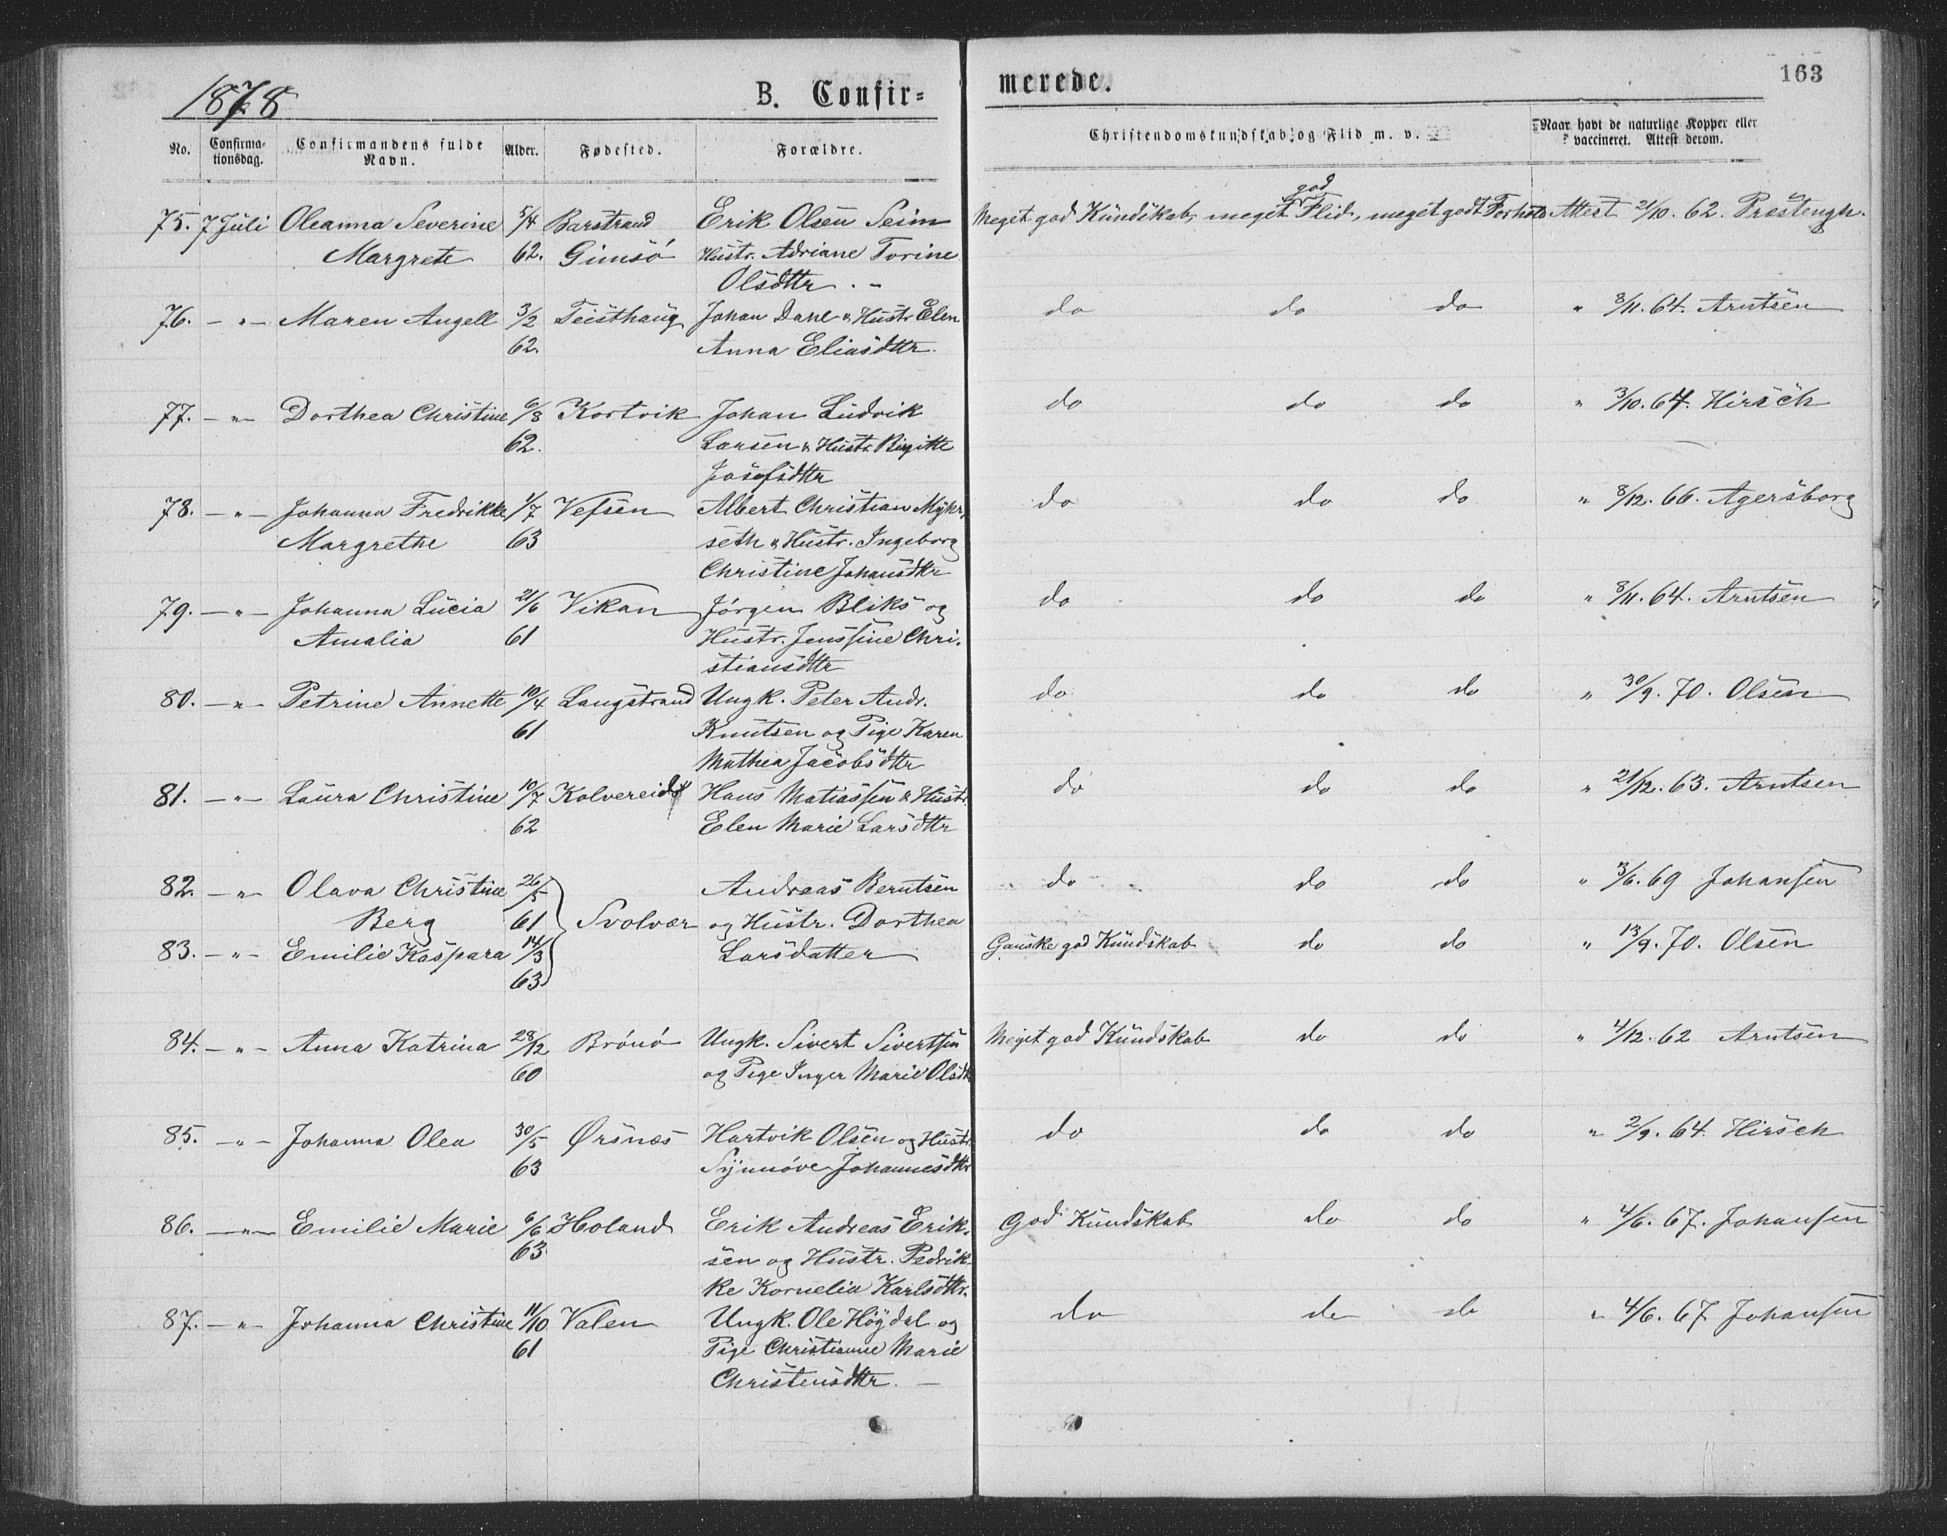 1878
B. Confirmerede.
163
No. Confirmationsdag. Confirmandens fulde Navn. Alder. Fødested. Forældre. Christendomskundskab og Flid m. v. Naar havt de naturlige Kopper eller vaccineret. Attest derom.
75. 7 Juli Oleanna Severine 5/4 Barstrand Erik Olsen Seim Meget god Kundskab, meget god Flid, meget godt Forhold Attest 2/10. 62.
Margrete 62. Gimsö Hustr. Adriane Torine
Olsdttr. -
76. - " - Maren Angell 3/2 Teisthaug Johan Dahl & Hustr Elen do do do " 8/11. 64. Arntsen
62. Anna Eliasdttr.
77. - " - Dorthea Christine 6/8 Kortvik Johan Ludvik do do do " 3/10. 64. Hirsch
62. Larsen & Hustr. Birgitte
Josefsdttr
78. - " - Johanna Fredrikke 1/7 Vefsen Albert Christian Myhr, do do do " 8/12. 66. Agersborg
Margrethe 63 seth & Hustr. Ingeborg
Christine Johansdttr
79. - " - Johanna Lucia 21/6 Vikan Jörgen Bliks og do do do " 8/11. 64. Arntsen
Amalia 61 Hustr. Jenssine Chri-
stiansdttr
80. - " - Petrine Annette 10/4 Langstrand Ungk. Peter Andr. do do do " 30/9. 70. Olsen
61 Knutsen og Pige Karen
Mathea Jacobsdttr
81. - " - Laura Christine 10/7 Kolvereid Hans Matiassen & Hustr. do do do " 21/12. 63. Arntsen
62 Elen Marie Larsdttr
82. - " - Olava Christine 26/5 Andreas Berntsen do do do " 3/6. 69 Johansen
Berg 61 Svolvær og Hustr. Dorthea
83. - " - Emilie Kaspara 14/3 Larsdatter Ganske god Kundskab do do " 13/9. 70. Olsen
63
84. - " - Anna Katrina 28/12 Brönö Ungk. Sivert Sivertsen Meget god Kundskab do do " 4/12. 62 Arntsen
60 og Pige Inger Marie Olsdtr
85. - " - Johanna Olea 30/5 Ørsnæs Hartvik Olsen og Hustr. do do do " 2/9. 64. Hirsch
63 Synnöve Johannesdttr
86. - " - Emilie Marie 6/6 Holand Erik Andreas Erik- God Kundskab do do " 4/6. 67. Johansen
63 sen og Hustr. Pedrik-
ke Kornelia Karlsdttr.
87. - " - Johanna Christine 11/10 Valen Ungk. Ole Höydal og do do do " 4/6. 67. Johansen
61 Pige Christianne Marie
Christensdttr. -